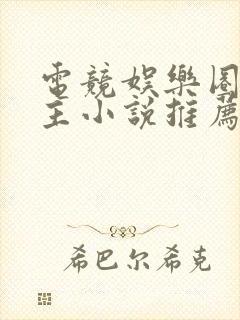 電競娛樂圈
主小說推薦
希巴尔希克